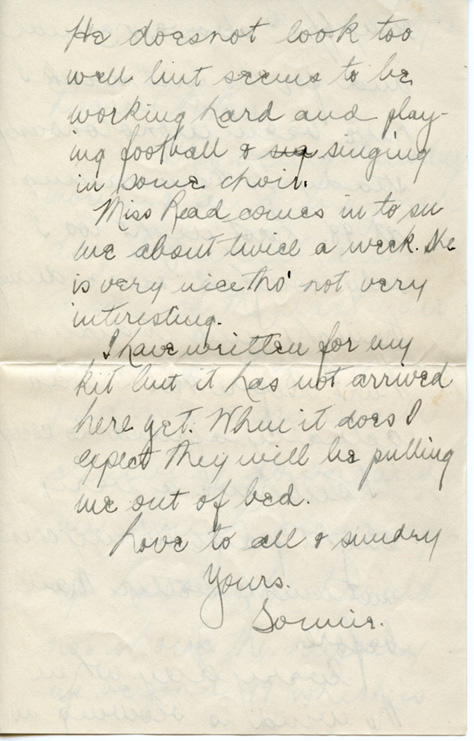 He does not look too
well but seems to be
working hard and play-
ing football & sig singing
in some choir.
Miss Read comes in to see
me about twice a week. She
is very nice tho' not very
interesting.
I have written for my
kit but it has not arrived
here yet. When it does I
expect they will be pulling
me out of bed.
Love to all & sundry
Yours.